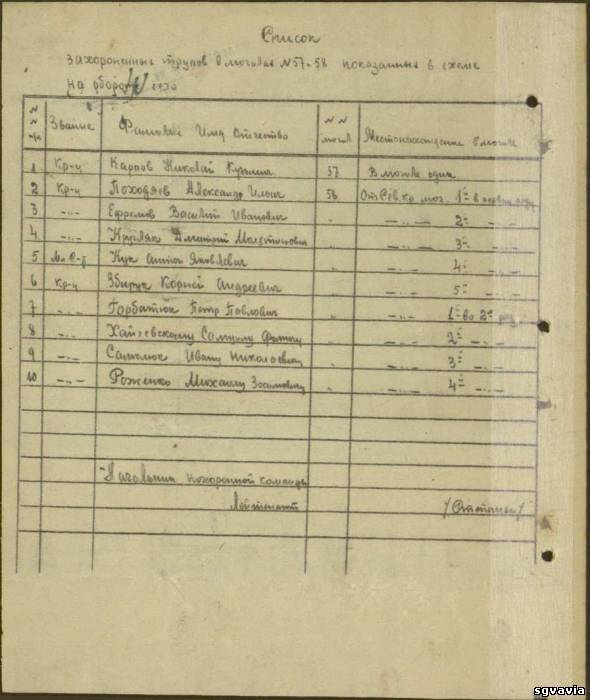 Список
захороненных трупов в могилах N 57-58 показанных в схеме
на обороте
N N п/п Звание Фамилия Имя Отчество N N могил Местонахождение в могиле
1 Кр-ц Карпов Николай 57 В могиле один
2 Кр-ц Походяев Александр Ильич 58 От Сев. кр. мог. 1й в первом ряду
3 -..- Ефремов Василий Иванович " -..- 2й -..-
4 -..- Кругляк Дмитрий " -..- 3й -..-
5 Мл. С-т Кук Антон Яковлевич " -..- 4й -..-
6 Кр-ц Збирук Корней Андреевич " -..- 5й -..-
7 -..- Горбатюк Петр Павлович " -..- 1й во 2й
8 -..- Самуилу " -..- 2й -..-
9 -..- Самолюк Ивану Николаевичу " -..- 3й -..-
10 -..- Роженко Михаилу " -..- 4й -..-
Начальник похоронной команды
Лейтенант
sgvavia